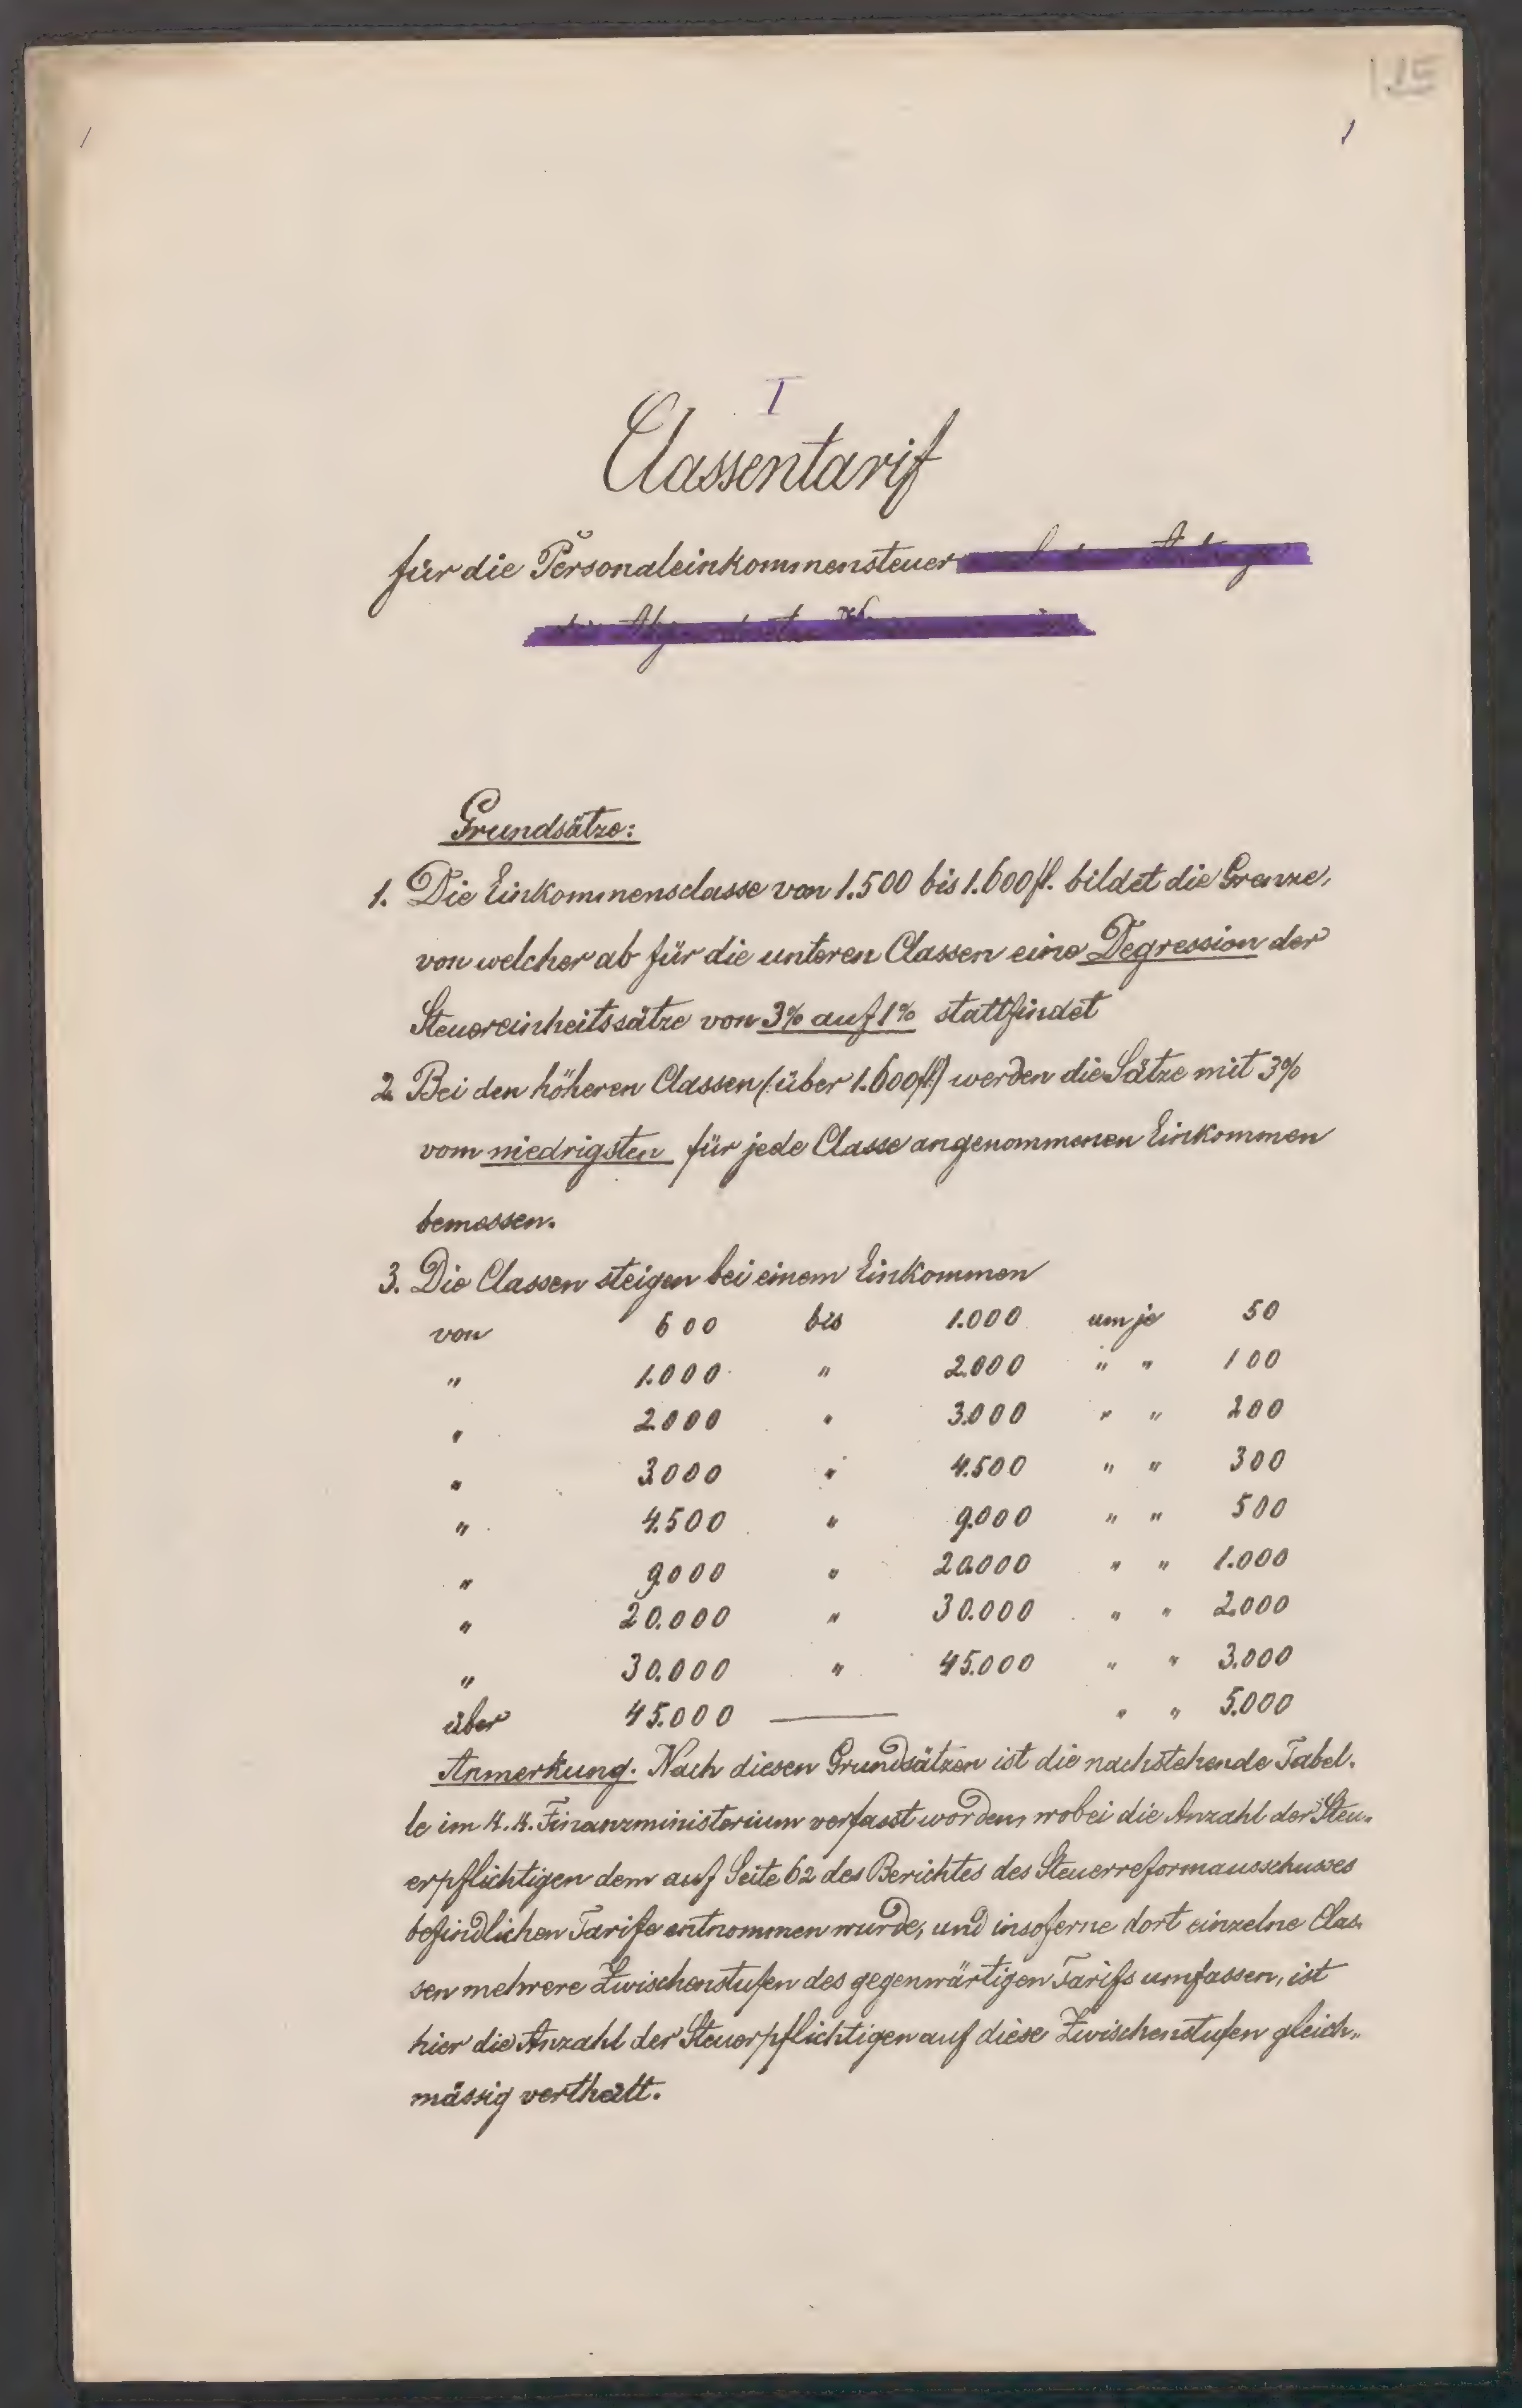 1
I
Classentarif
für die Personaleinkommensteuer
Grundsätze:
1. Die Einkommensclasse von 1.500 bis 1.600 fl. bildet die Grenze,
von welcher ab für die unteren Classen eine Degression der
Steuereinheitssätze von 3% auf 1% stattfindet
2. Bei den höheren Classen (:über 1.600 fl:) werden die Sätze mit 3%
vom niedrigsten für jede Classe angenommenen Einkommen
bemessen.
3. Die Classen steigen bei einem Einkommen
von 600 bis 1.000 um je 50
" 1.000 " 2.000 " " 100
" 2.000 " 3.000 " " 200
" 3.000 " 4.500 " " 300
" 4.500 " 9.000 " " 500
" 9.000 " 20.000 " " 1.000
" 20.000 " 30.000 " " 2.000
" 30.000 " 45.000 " " 3.000
über 45.000 — " " 5.000
Anmerkung. Nach diesen Grundsätzen ist die nachstehende Tabel-
le im k. k. Finanzministerium verfasst worden, wobei die Anzahl der Steu-
erpflichtigen dem auf Seite 62 des Berichtes des Steuerreformausschusses
befindlichen Tarife entnommen wurde, und insoferne dort einzelne Clas-
sen mehrere Zwischenstufen des gegenwärtigen Tarifs umfassen, ist
hier die Anzahl der Steuerpflichtigen auf diese Zwischenstufen gleich-
mässig vertheilt.